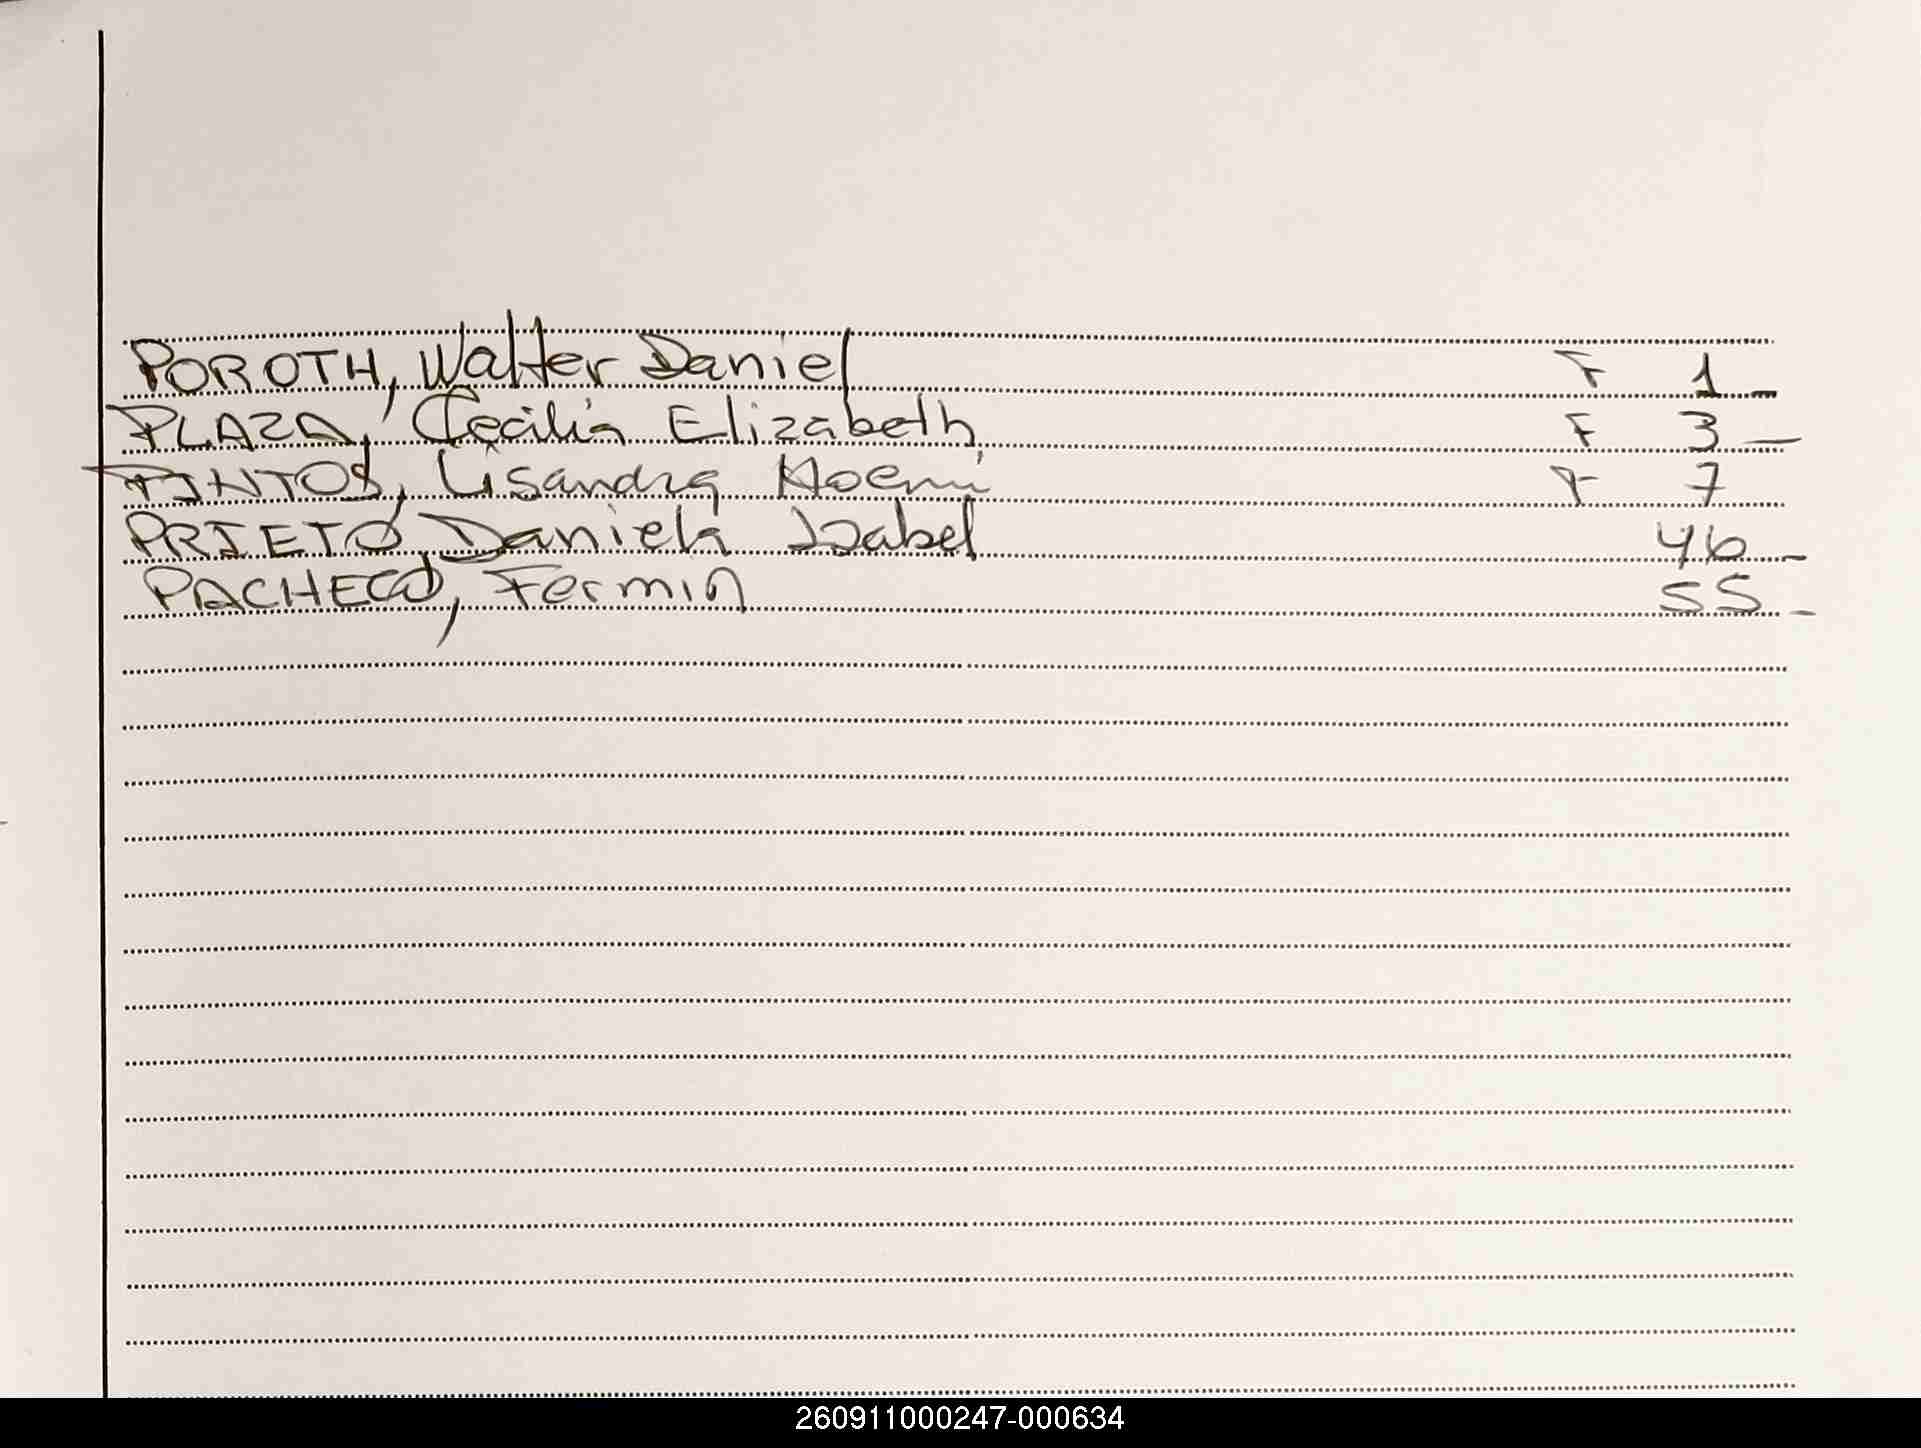 POROTH, Walter Daniel F 1
PLAZA, Cecilia Elizabeth F 3
PINTOS, Lisandra Noemi F 7
PRIETO, Daniela Isabel 46
PACHECO, Fermin 55
260911000247-000634